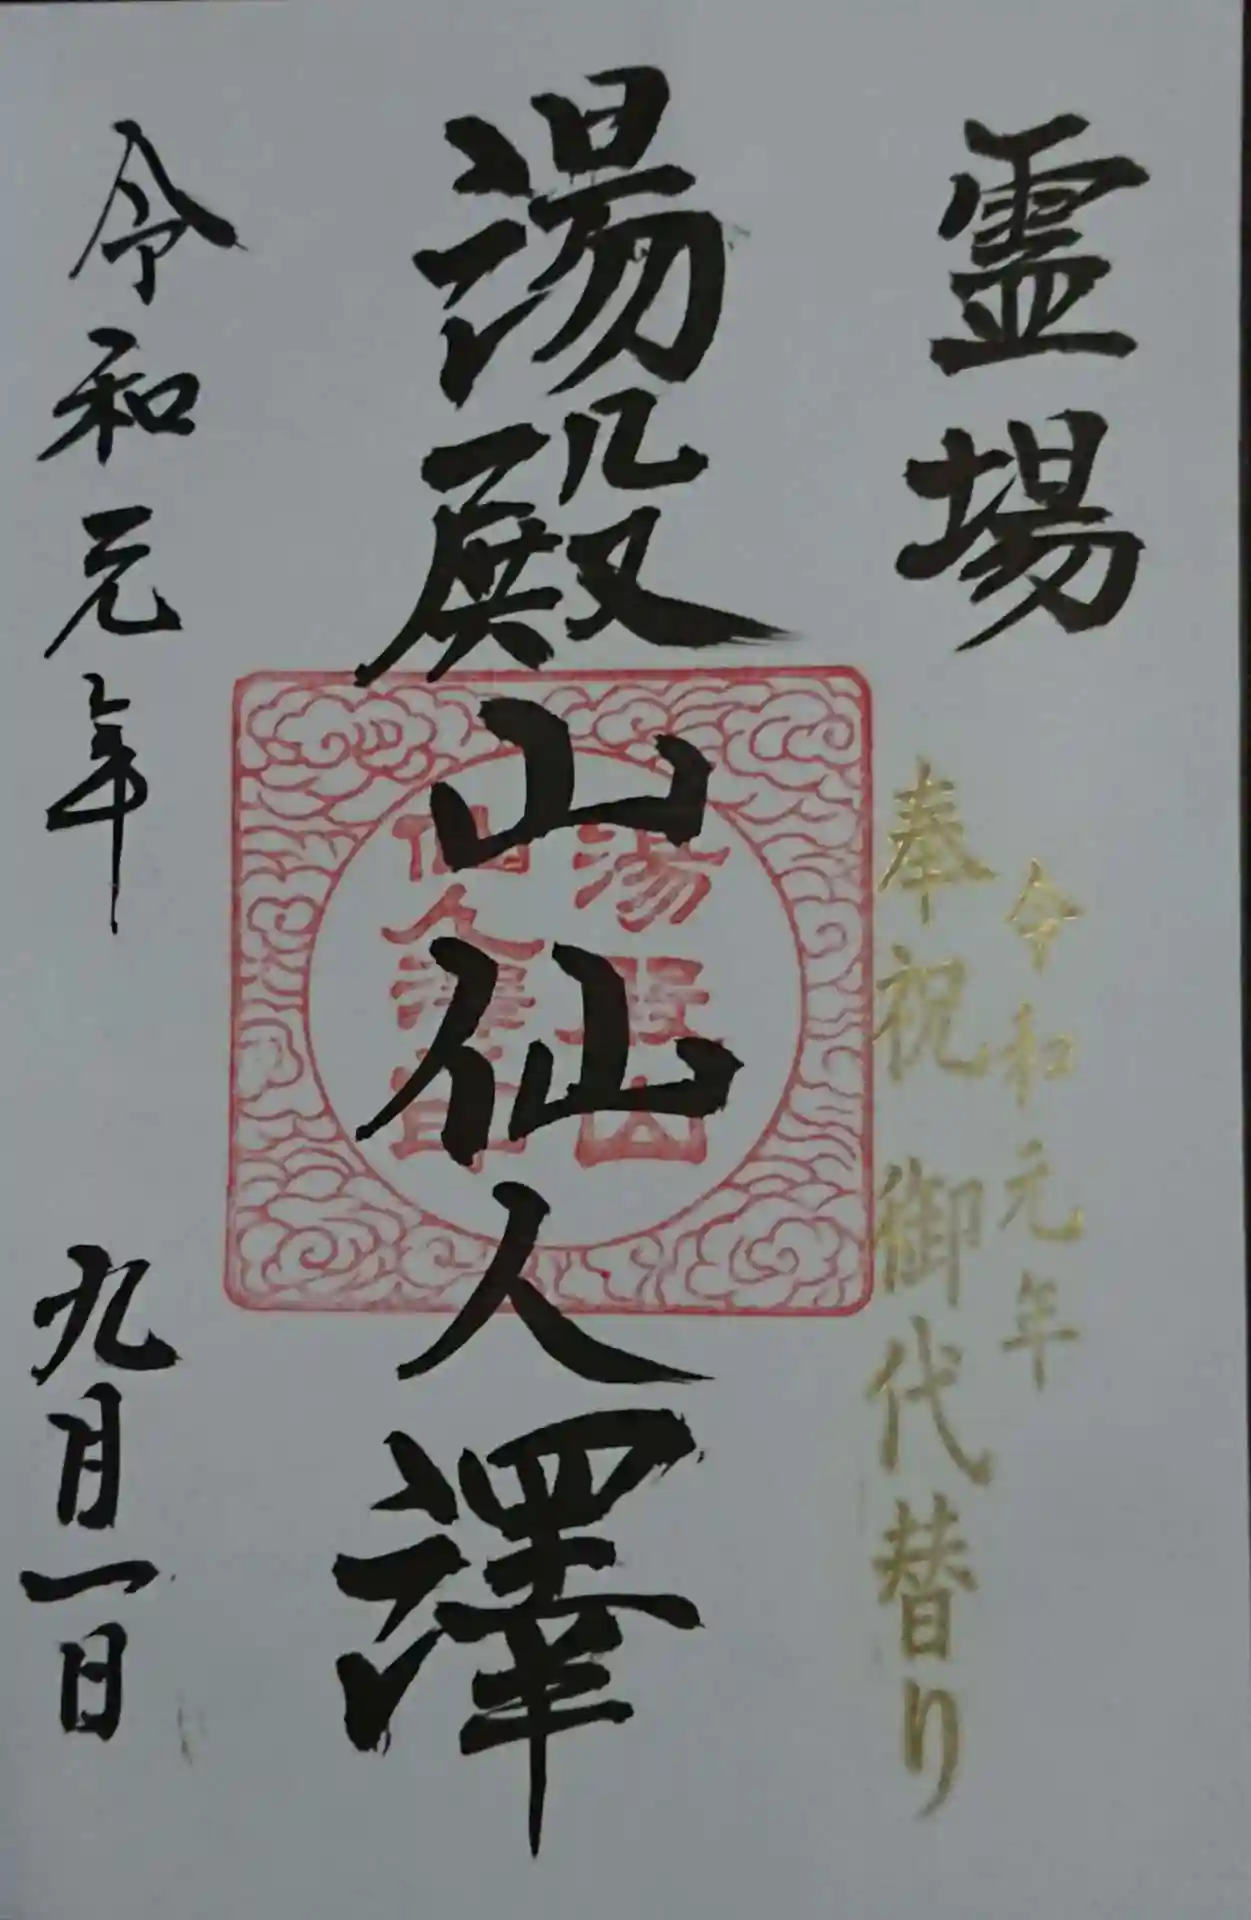 霊場
令和元年
奉祝 御代替り
湯殿山仙人澤
湯殿山
仙人澤印
令和元年 九月一日